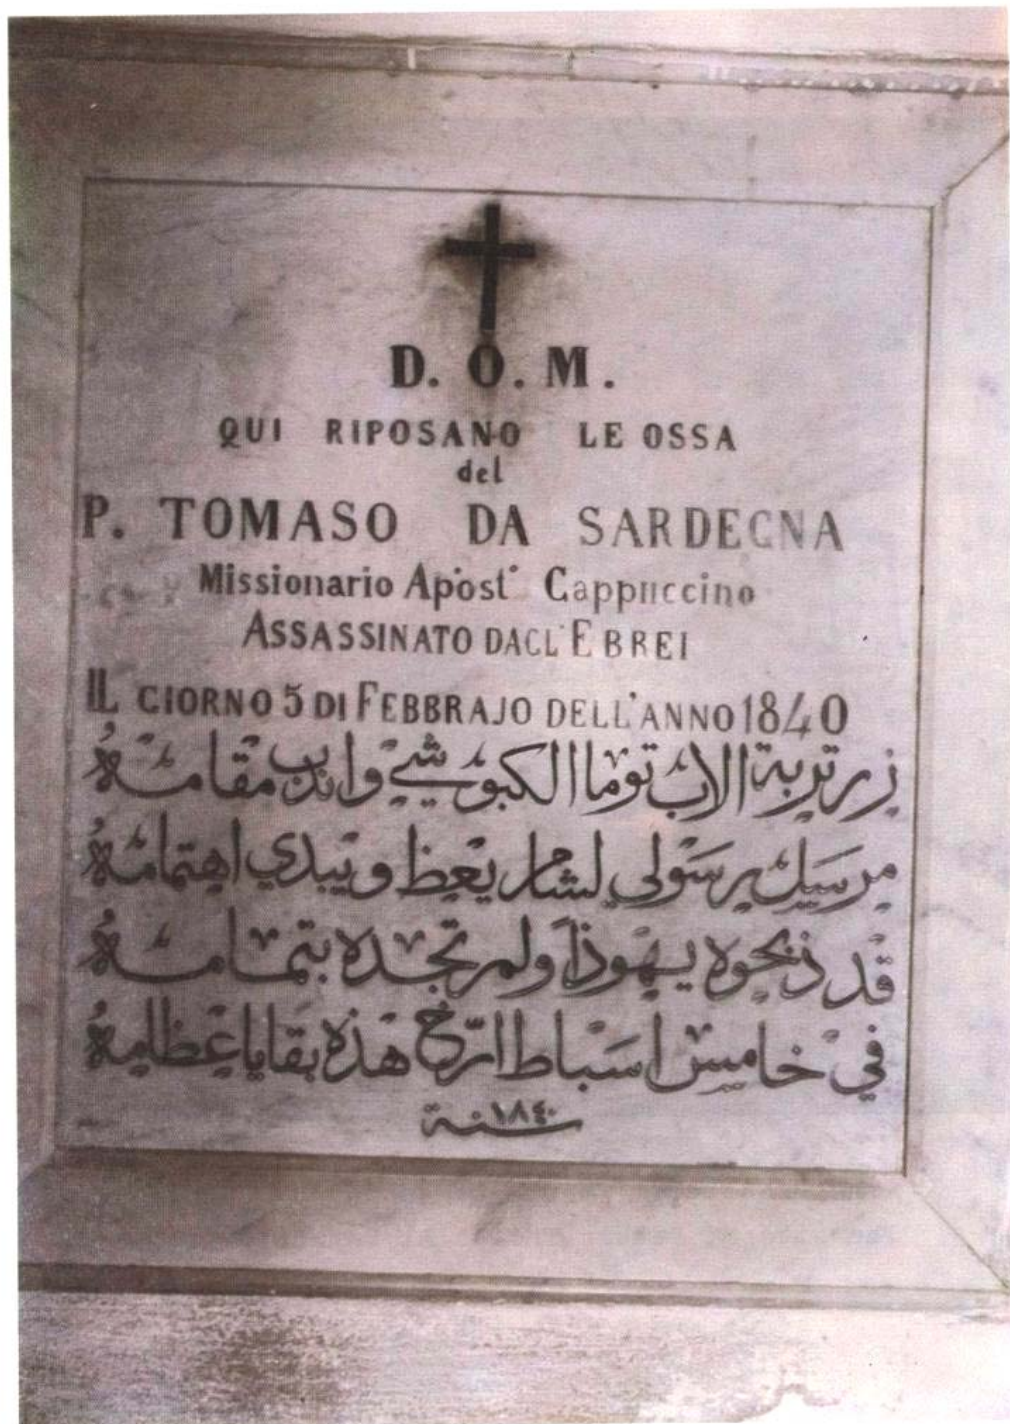 D. O. M.
QUI RIPOSANO LE OSSA
del
P. TOMASO DA SARDEGNA
Missionario Apost° Cappuccino
ASSASSINATO DAGL'EBREI
IL GIORNO 5 DI FEBBRAJO DELL'ANNO 1840
زر تربة الاب توما الكبوشي واندب مقامه
مرسل برسولي لشام يعظ ويبدي اهتمامه
قد ذبحوه يهوذا ولم تجده بتمامه
في خامس اسباط ارّخ هذه بقايا عظامه
سنة ١٨٤٠